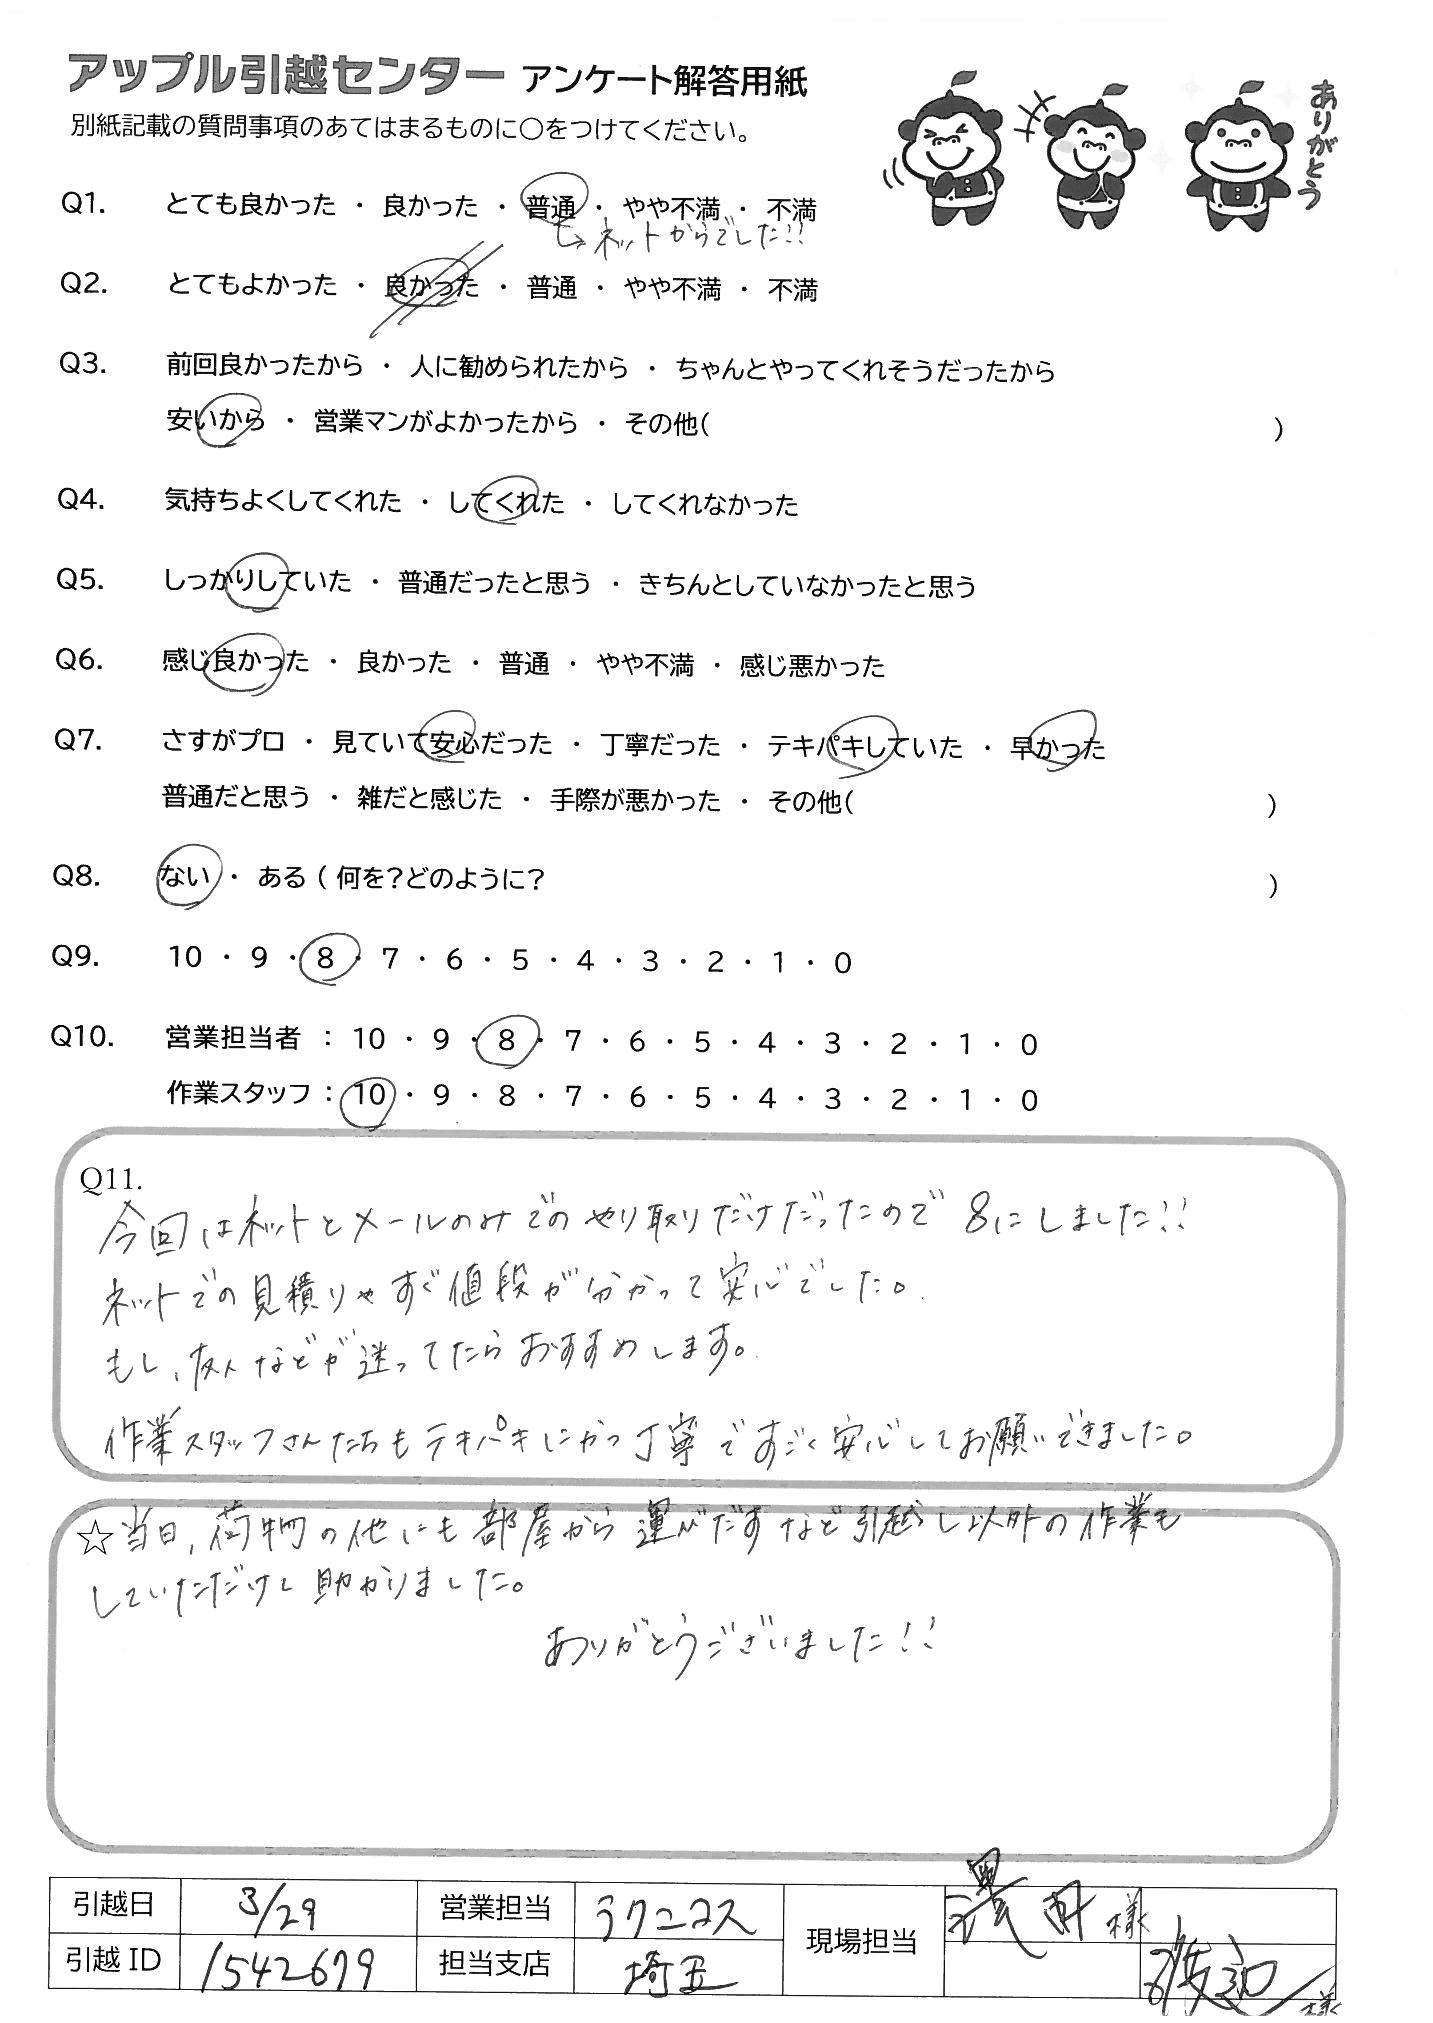 アップル引越センター アンケート解答用紙
別紙記載の質問事項のあてはまるものに○をつけてください。
ありがとう
Q1. とても良かった ・ 良かった ・ 普通 ・ やや不満 ・ 不満
↳ネットからでした!!
Q2. とてもよかった ・ 良かった ・ 普通 ・ やや不満 ・ 不満
Q3. 前回良かったから ・ 人に勧められたから ・ ちゃんとやってくれそうだったから
安いから ・ 営業マンがよかったから ・ その他( )
Q4. 気持ちよくしてくれた ・ してくれた ・ してくれなかった
Q5. しっかりしていた ・ 普通だったと思う ・ きちんとしていなかったと思う
Q6. 感じ良かった ・ 良かった ・ 普通 ・ やや不満 ・ 感じ悪かった
Q7. さすがプロ ・ 見ていて安心だった ・ 丁寧だった ・ テキパキしていた ・ 早かった
普通だと思う ・ 雑だと感じた ・ 手際が悪かった ・ その他( )
Q8. ない ・ ある ( 何を?どのように? )
Q9. 10 ・ 9 ・ 8 ・ 7 ・ 6 ・ 5 ・ 4 ・ 3 ・ 2 ・ 1 ・ 0
Q10. 営業担当者 : 10 ・ 9 ・ 8 ・ 7 ・ 6 ・ 5 ・ 4 ・ 3 ・ 2 ・ 1 ・ 0
作業スタッフ : 10 ・ 9 ・ 8 ・ 7 ・ 6 ・ 5 ・ 4 ・ 3 ・ 2 ・ 1 ・ 0
Q11.
今回はネットとメールのみでのやり取りだけだったので 8にしました!!
ネットでの見積りやすぐ値段が分かって安心でした。
もし、友人などが迷ってたらおすすめします。
作業スタッフさんたちもテキパキにかつ丁寧ですごく安心してお願いできました。
☆当日、荷物の他にも部屋から運びだすなど引越し以外の作業も
していただけて助かりました。
ありがとうございました!!
引越日 3/29 営業担当 ラクニコス 現場担当 様
引越ID 1542679 担当支店 埼玉 渡辺様